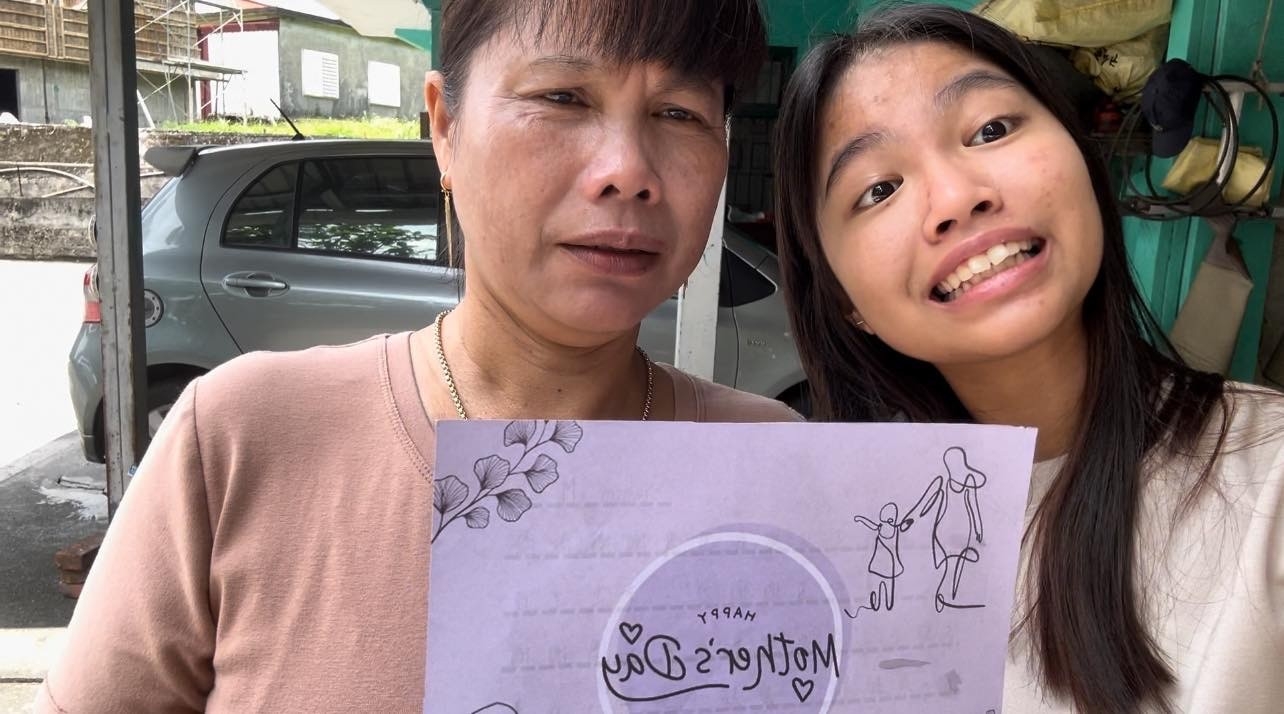 HAPPY
Mother's Day